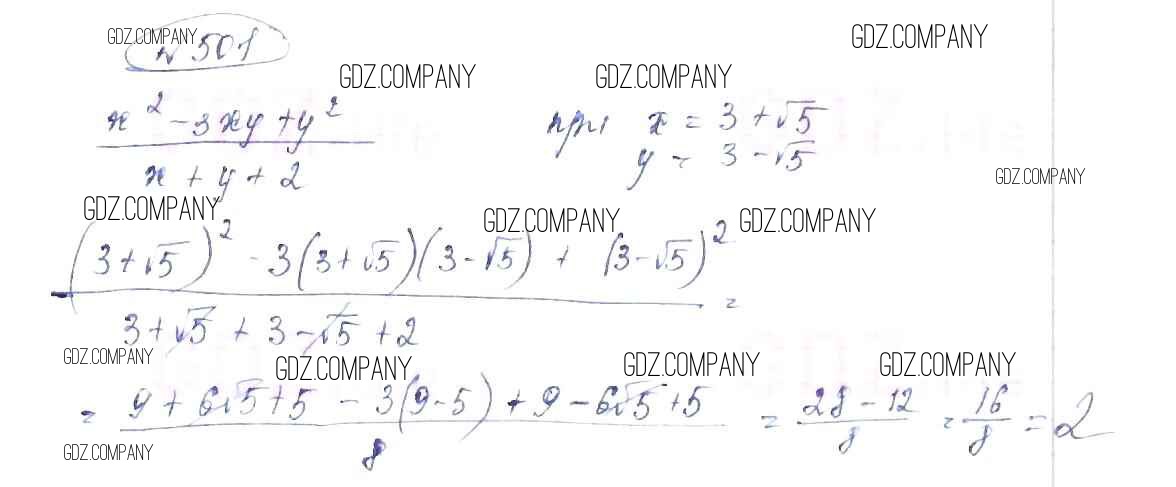 GDZ.COMPANY
№ 501
GDZ.COMPANY
GDZ.COMPANY GDZ.COMPANY
x² - 3xy + y² при x = 3 + √5
x + y + 2 y = 3 - √5
GDZ.COMPANY
GDZ.COMPANY GDZ.COMPANY GDZ.COMPANY
(3+√5)² - 3(3+√5)(3-√5) + (3-√5)² =
3 + √5 + 3 - √5 + 2
GDZ.COMPANY GDZ.COMPANY GDZ.COMPANY GDZ.COMPANY
= 9 + 6√5 + 5 - 3(9-5) + 9 - 6√5 + 5 = 28 - 12 = 16 = 2
8 8 8
GDZ.COMPANY